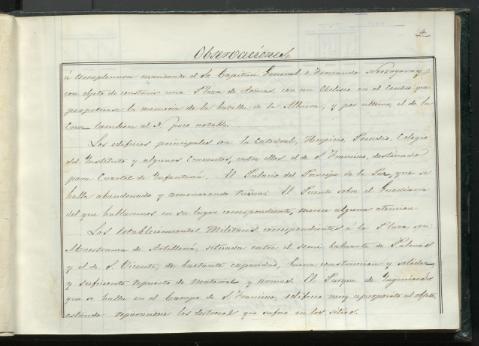 Observaciones
ó Esceplennon mandando el Sr. Capitan General D. Fernando
con objeto de construir una Plaza de Armas, con un Obelisco en el centro que
perpetuara la memoria de la batalla de la Albuera, y por ultimo el de la
Cruz tambien al S. poco notable.
Los edificios principales son la Catedral, Hospicio, Presidio, Colegio
del Instituto y algunos Conventos, entre ellos el de S. Francisco, destinado
para Cuartel de Infanteria. El Palacio del Principe de la Paz, que se
halla abandonado y amenazando ruina. El Puente sobre el Guadiana
del que hablaremos en su lugar correspondiente, merece alguna atencion.
Los Establecimientos Militares correspondientes á la Plaza son
Maestranza de Artilleria, situada entre el semi baluarte de Palmas
y el de S. Vicente, de bastante capacidad, buena construccion y solidez
y suficiente repuesto de material y armas. El Parque de Ingenieros
que se halla en el Campo de S. Francisco, edificio muy apropósito al objeto,
estando reparandose los destrozos que sufrio en los sitios.